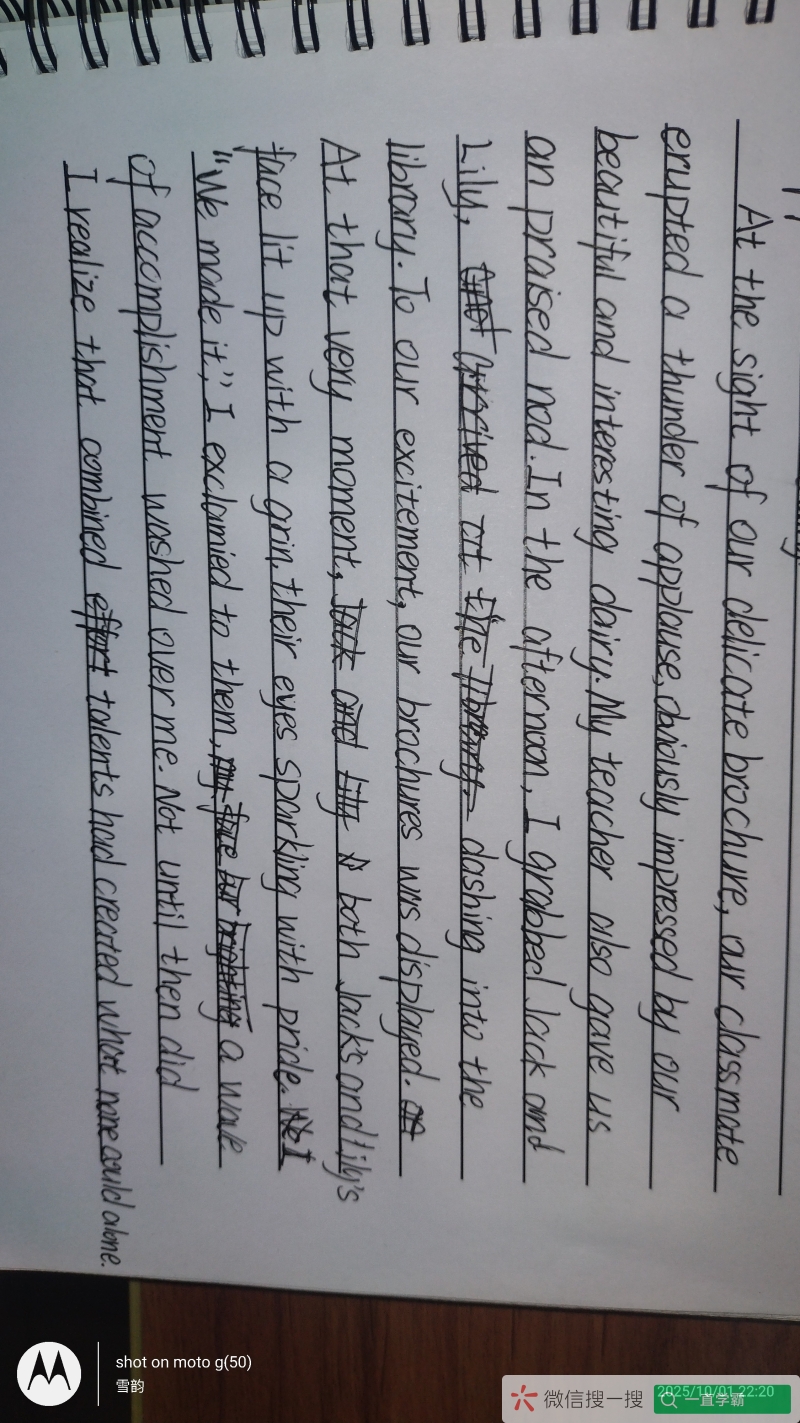 At the sight of our delicate brochure, our classmate
erupted a thunder of applause, obviously impressed by our
beautiful and interesting dairy. My teacher also gave us
an praised nod. In the afternoon, I grabbed Jack and
Lily, arrived at the library. dashing into the
library. To our excitement, our brochures was displayed.
At that very moment, Jack and Lily both Jack's and Lily's
face lit up with a grin, their eyes sparkling with pride.
"We made it," I exclamied to them, a wave
of accomplishment washed over me. Not until then did
I realize that combined effort talents had created what none could alone.
shot on moto g(50)
雪韵
微信搜一搜
2025/10/01 22:20
一直学霸